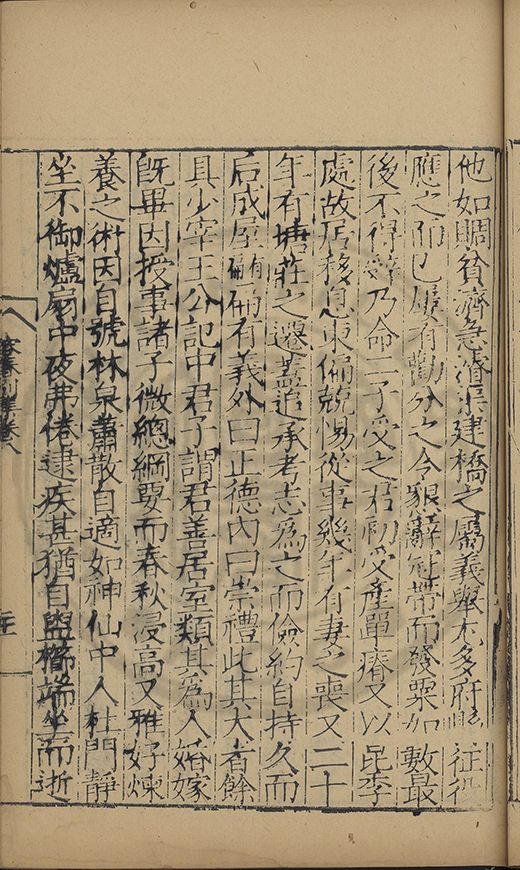 他如賙貧濟急濬渠建橋之屬義舉尤多府縣征役
應之而已屢有勸分之令輒辭冠帶而發粟如數最
後不得辭乃命二子受之君初受產單瘠又以昆季
處故居移息東偏兢惕從事幾年有妻之喪又二十
年有塘莊之遷蓋追承考志為之而儉約自持久而
后成屋有有義外曰正德內曰崇禮此其大者餘
具少宰王公記中君子謂君善居室類其為人婚嫁
既畢因授事諸子微總綱要而春秋浸高又雅好煉
養之術因自號林泉蕭散自適如神仙中人杜門靜
坐不御爐扇中夜弗倦逮疾甚猶自盥櫛端坐而逝
卷八